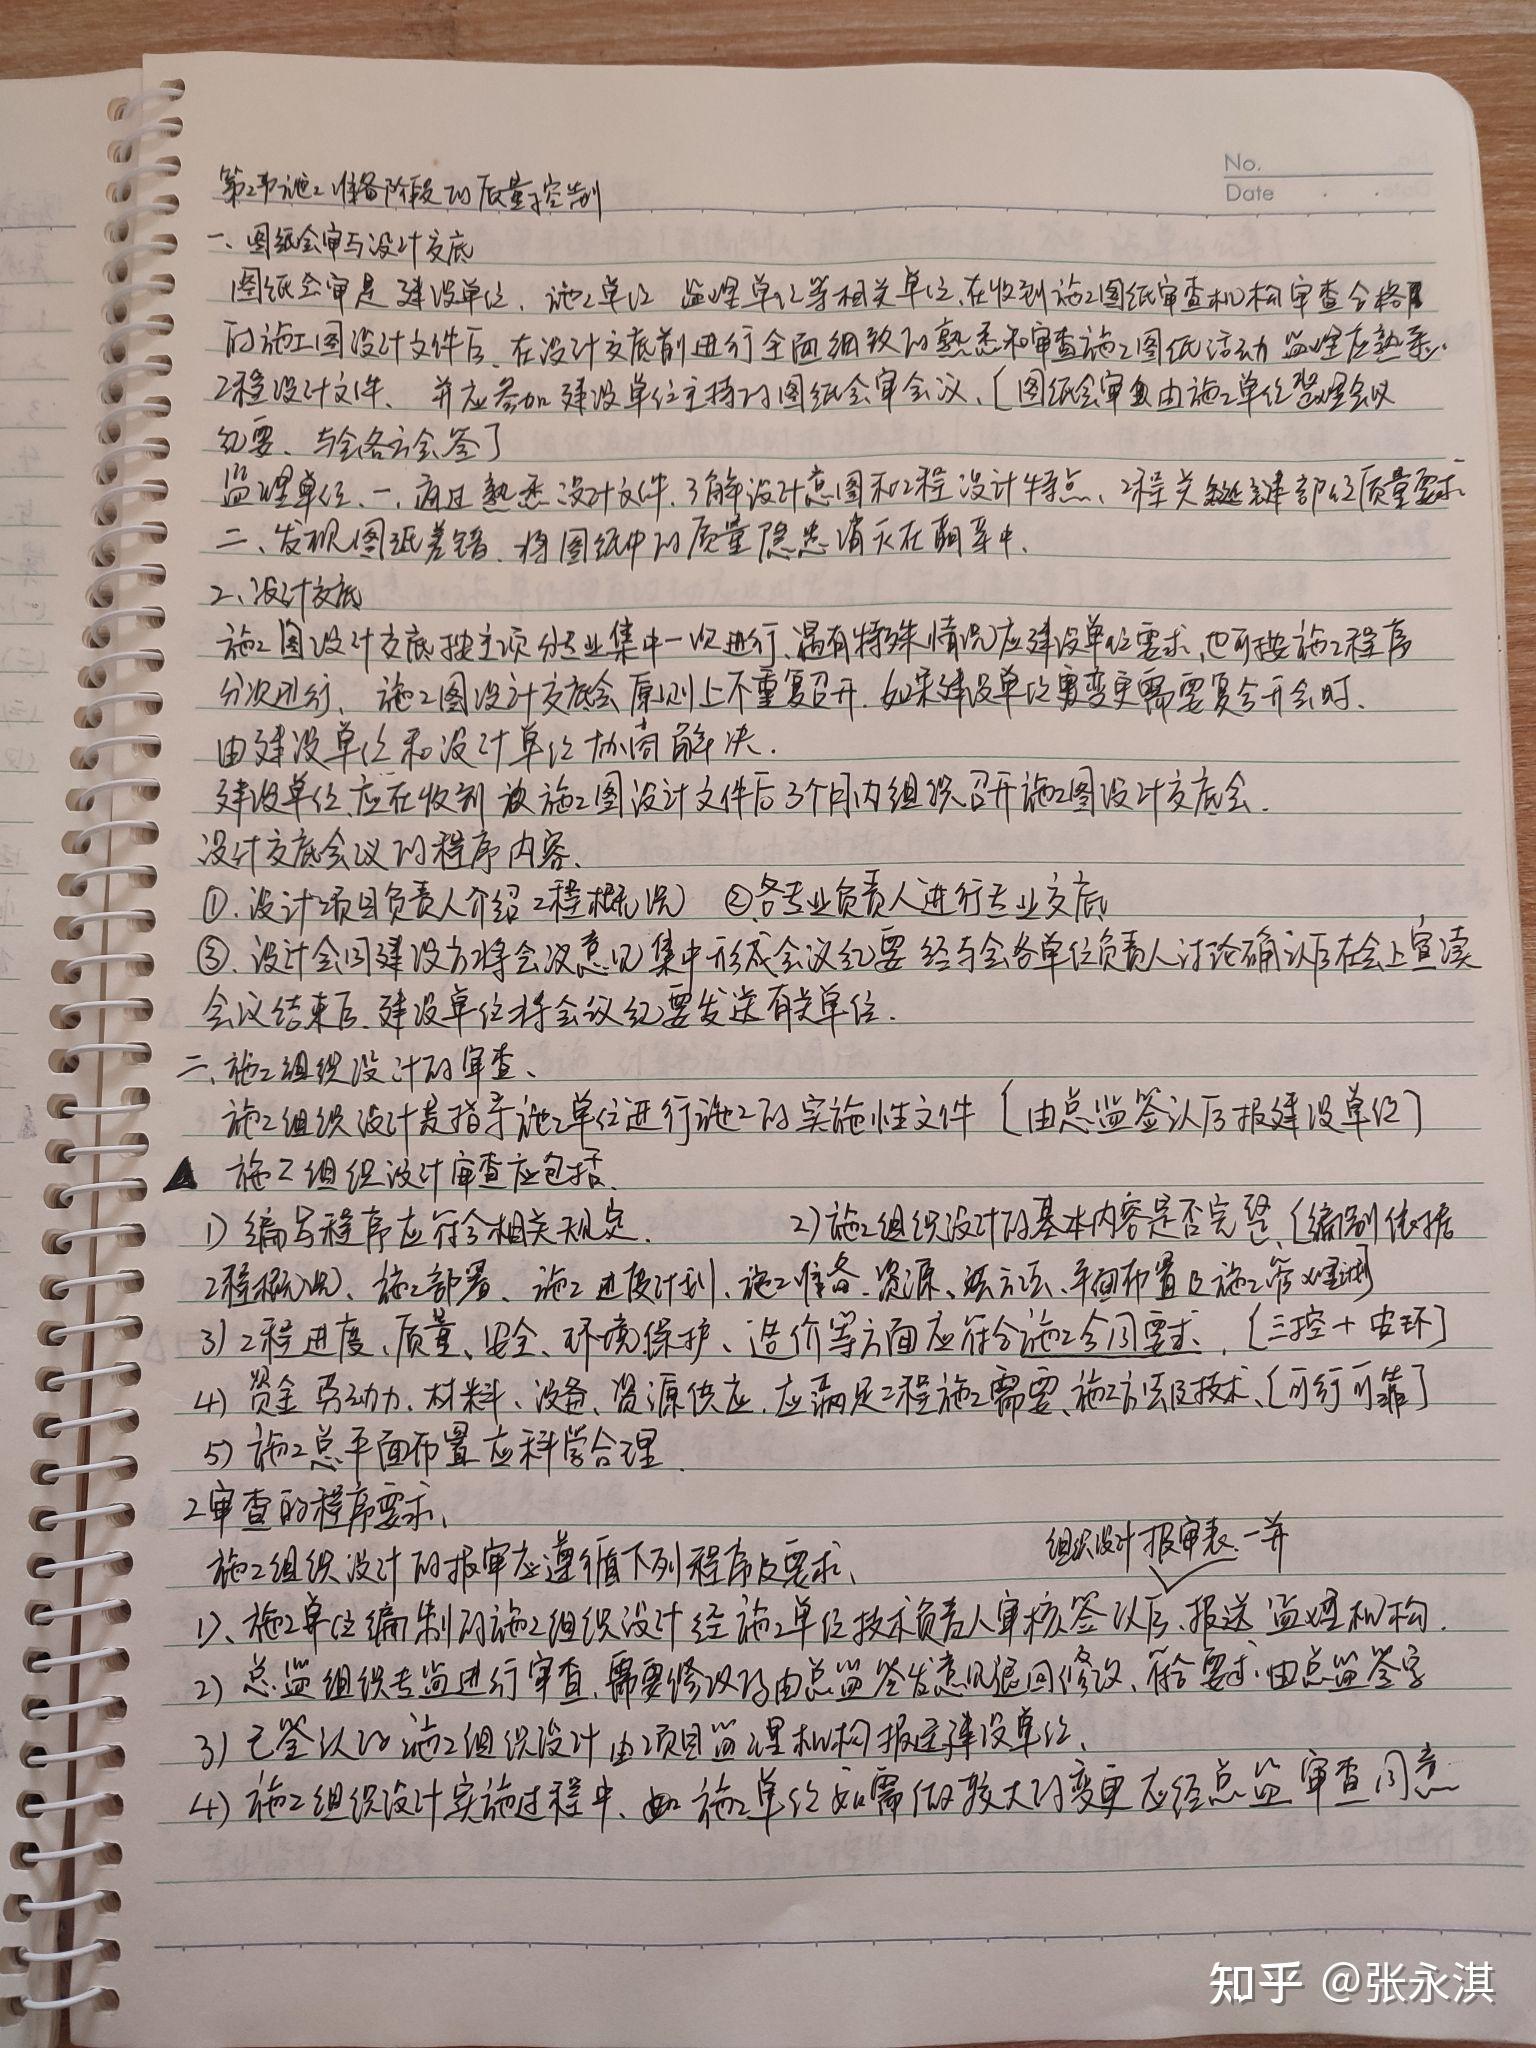 No.
Date
第2节施工准备阶段的质量控制
一、图纸会审与设计交底
图纸会审是建设单位、施工单位 监理单位等相关单位、在收到施工图纸审查机构审查合格
的施工图设计文件后、在设计交底前进行全面细致的熟悉和审查施工图纸活动 监理应熟悉
工程设计文件、并应参加建设单位主持的图纸会审会议、[图纸会审由施工单位整理会议
纪要、与会各方会签]
监理单位、一、通过熟悉设计文件、了解设计意图和工程设计特点、工程关键部位质量要求
二、发现图纸差错、将图纸中的质量隐患消灭在萌芽中.
2、设计交底
施工图设计交底按主项分专业集中一次进行、遇有特殊情况应建设单位要求、也可按施工程序
分次进行、施工图设计交底会原则上不重复召开、如果建设单位变更需要复会开会时、
由建设单位和设计单位协商解决.
建设单位应在收到施工图设计文件后3个月内组织召开施工图设计交底会.
设计交底会议的程序内容、
①、设计项目负责人介绍工程概况 ②各专业负责人进行专业交底
③、设计会同建设方将会议意见集中形成会议纪要 经与会各单位负责人讨论确认后在会上宣读
会议结束后、建设单位将会议纪要发送有关单位.
二、施工组织设计的审查、
施工组织设计是指导施工单位进行施工的实施性文件 [由总监签认后报建设单位]
▲ 施工组织设计审查应包括.
1) 编写程序应符合相关规定. 2)施工组织设计的基本内容是否完整、[编制依据
工程概况、施工部署、施工进度计划、施工准备、资源、方法、平面布置及施工管理计划]
3) 工程进度、质量、安全、环境保护、造价等方面应符合施工合同要求. [三控+安环]
4) 资金 劳动力、材料、设备、资源供应、应满足工程施工需要、施工方法及技术、[可行可靠]
5) 施工总平面布置应科学合理.
2审查的程序要求、
组织设计报审表一并
施工组织设计的报审应遵循下列程序及要求、
1)、施工单位编制的施工组织设计经施工单位技术负责人审核签认后、报送监理机构.
2) 总监组织专监进行审查、需要修改的由总监签发意见退回修改、符合要求、由总监签字
3) 已签认的施工组织设计由项目监理机构报送建设单位、
4) 施工组织设计实施过程中、施工单位如需做较大的变更应经总监审查同意
知乎 @张永淇